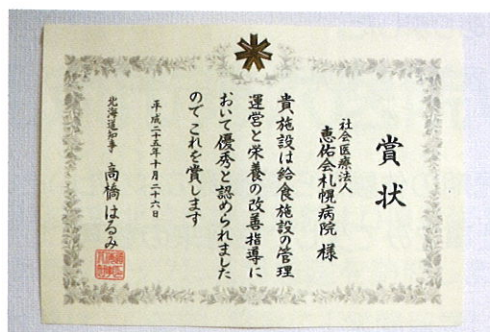 賞状
社会医療法人
恵佑会札幌病院 様
貴施設は給食施設の管理
運営と栄養の改善指導に
おいて優秀と認められました
ので これを賞します
平成二十五年十月二十六日
北海道知事 高橋はるみ